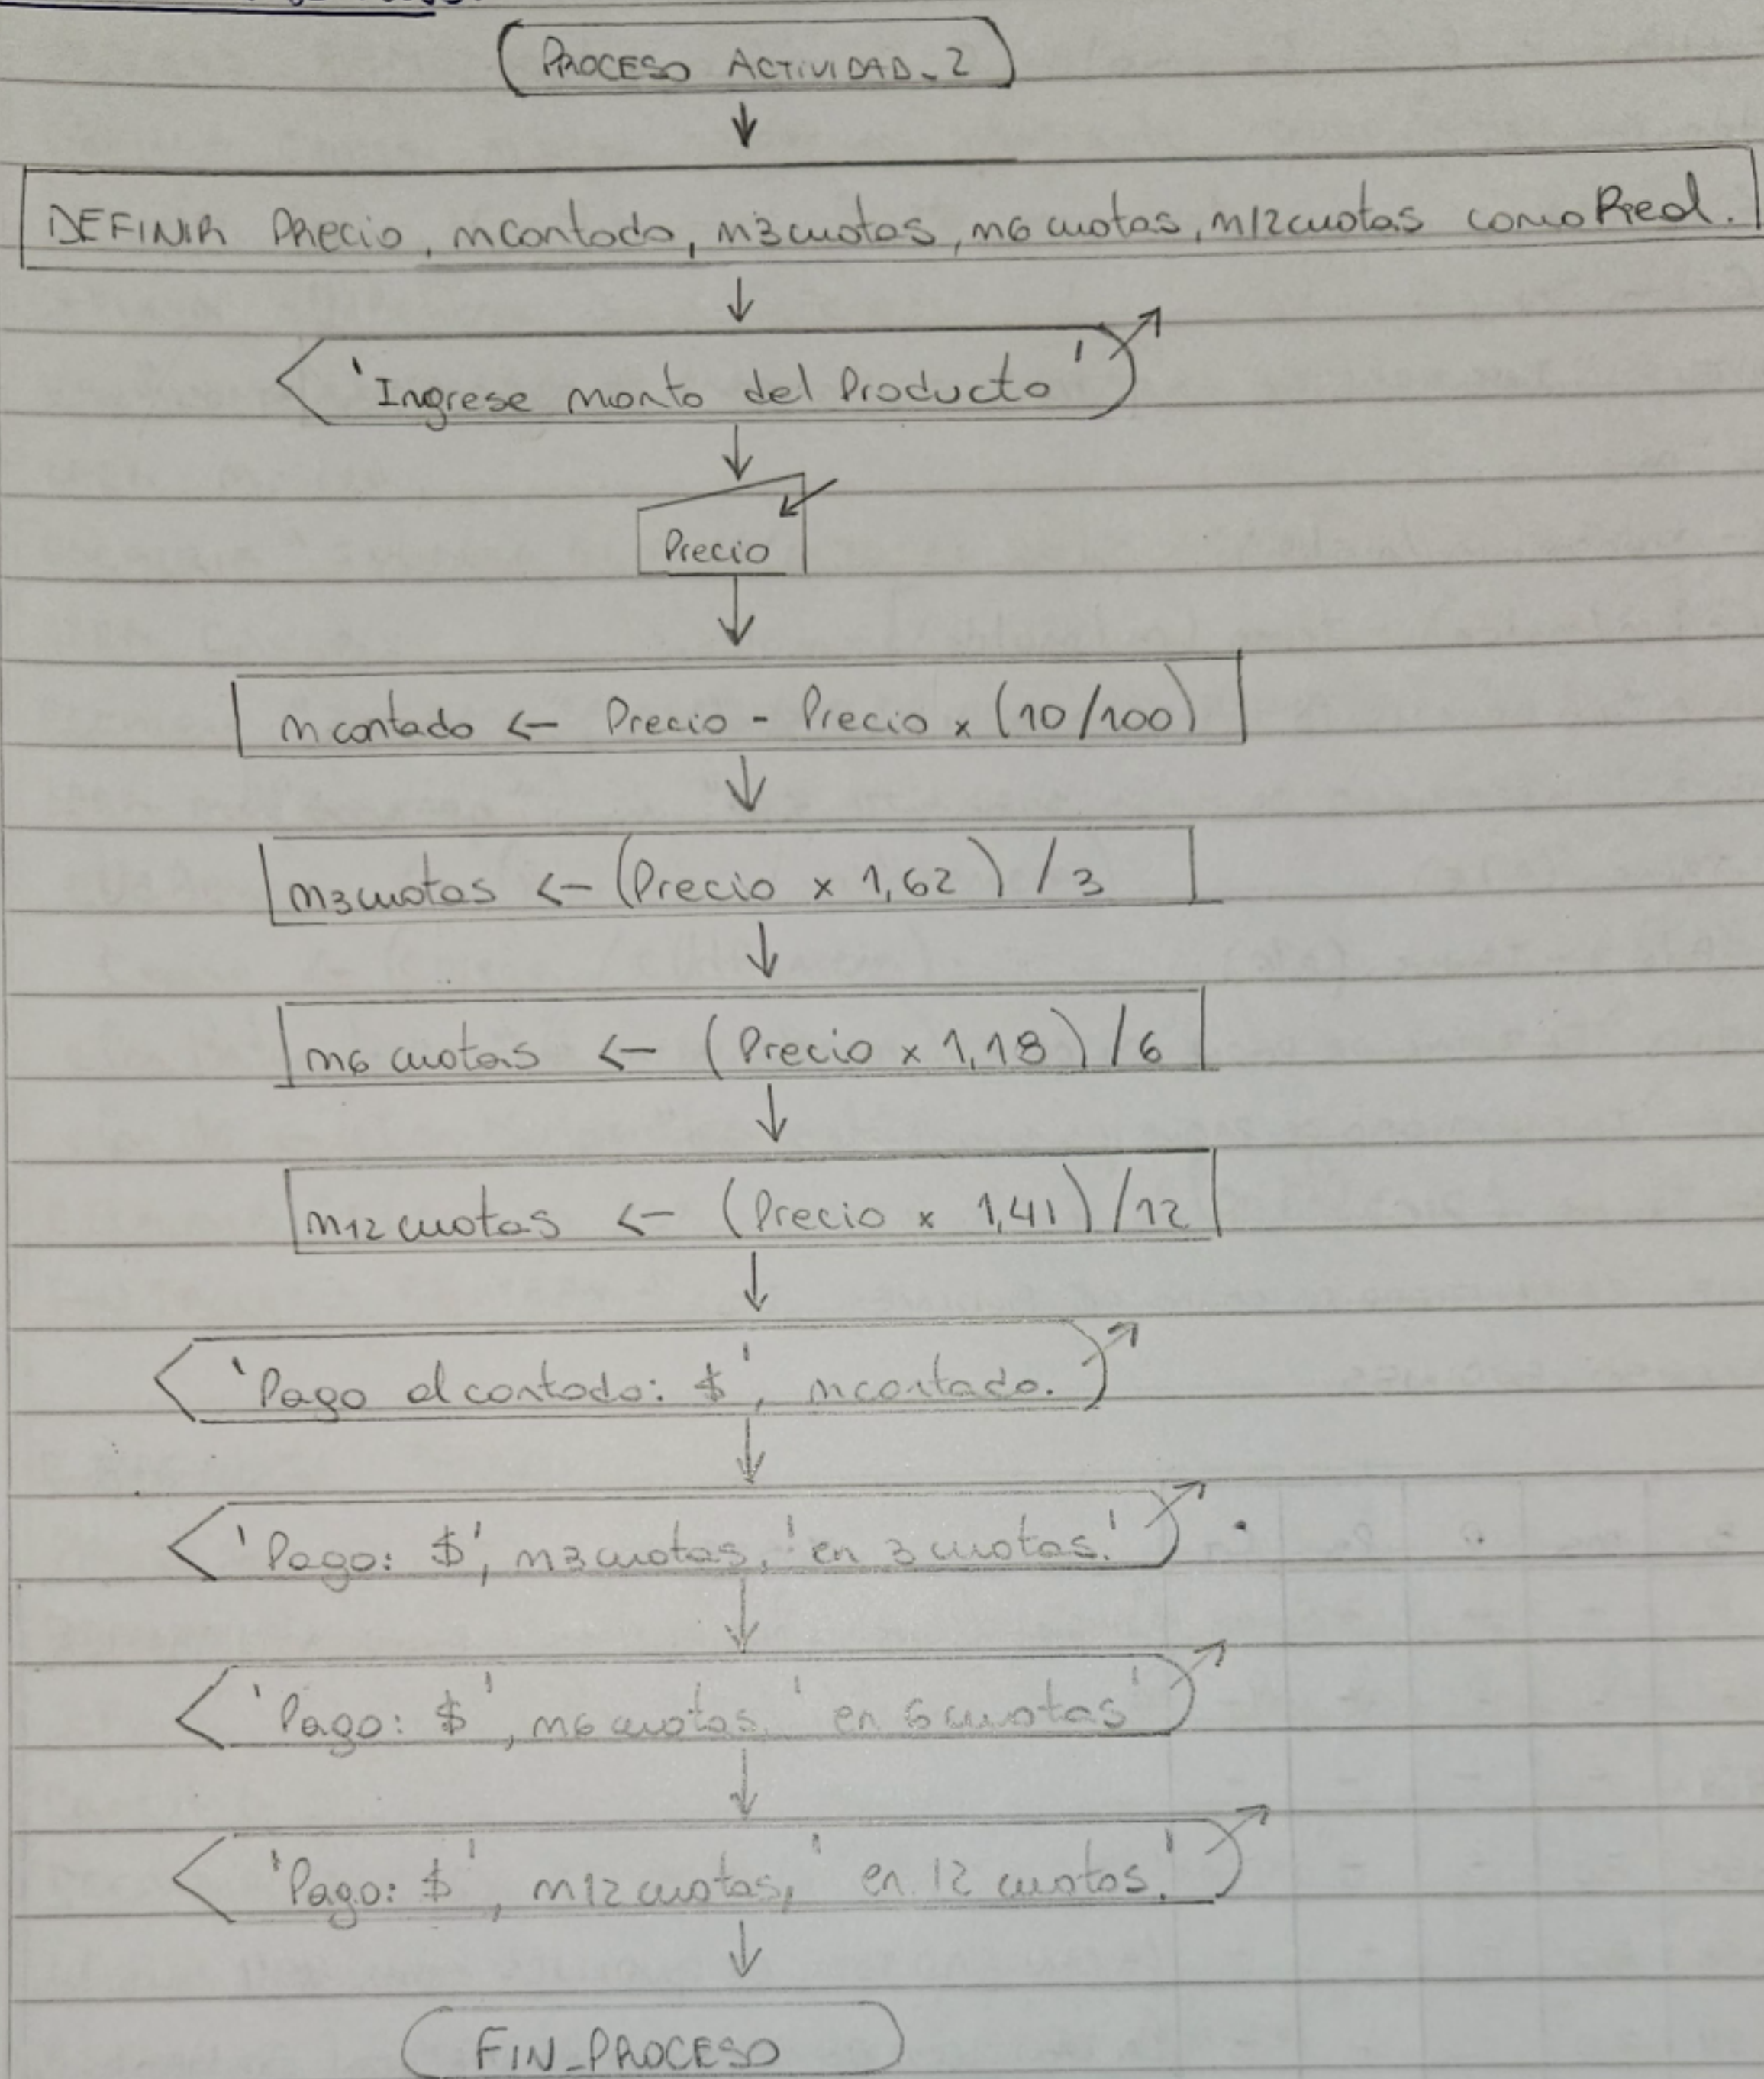 PROCESO ACTIVIDAD_2
DEFINIR Precio, mcontado, m3cuotas, m6cuotas, m12cuotas como Real.
'Ingrese monto del Producto'
Precio
mcontado ← Precio - Precio x (10/100)
m3cuotas ← (Precio x 1,62) / 3
m6cuotas ← (Precio x 1,18) / 6
m12cuotas ← (Precio x 1,41) / 12
'Pago al contado: $', mcontado.
'Pago: $', m3cuotas, 'en 3 cuotas.'
'Pago: $', m6cuotas, 'en 6 cuotas'
'Pago: $', m12cuotas, 'en 12 cuotas.'
FIN_PROCESO